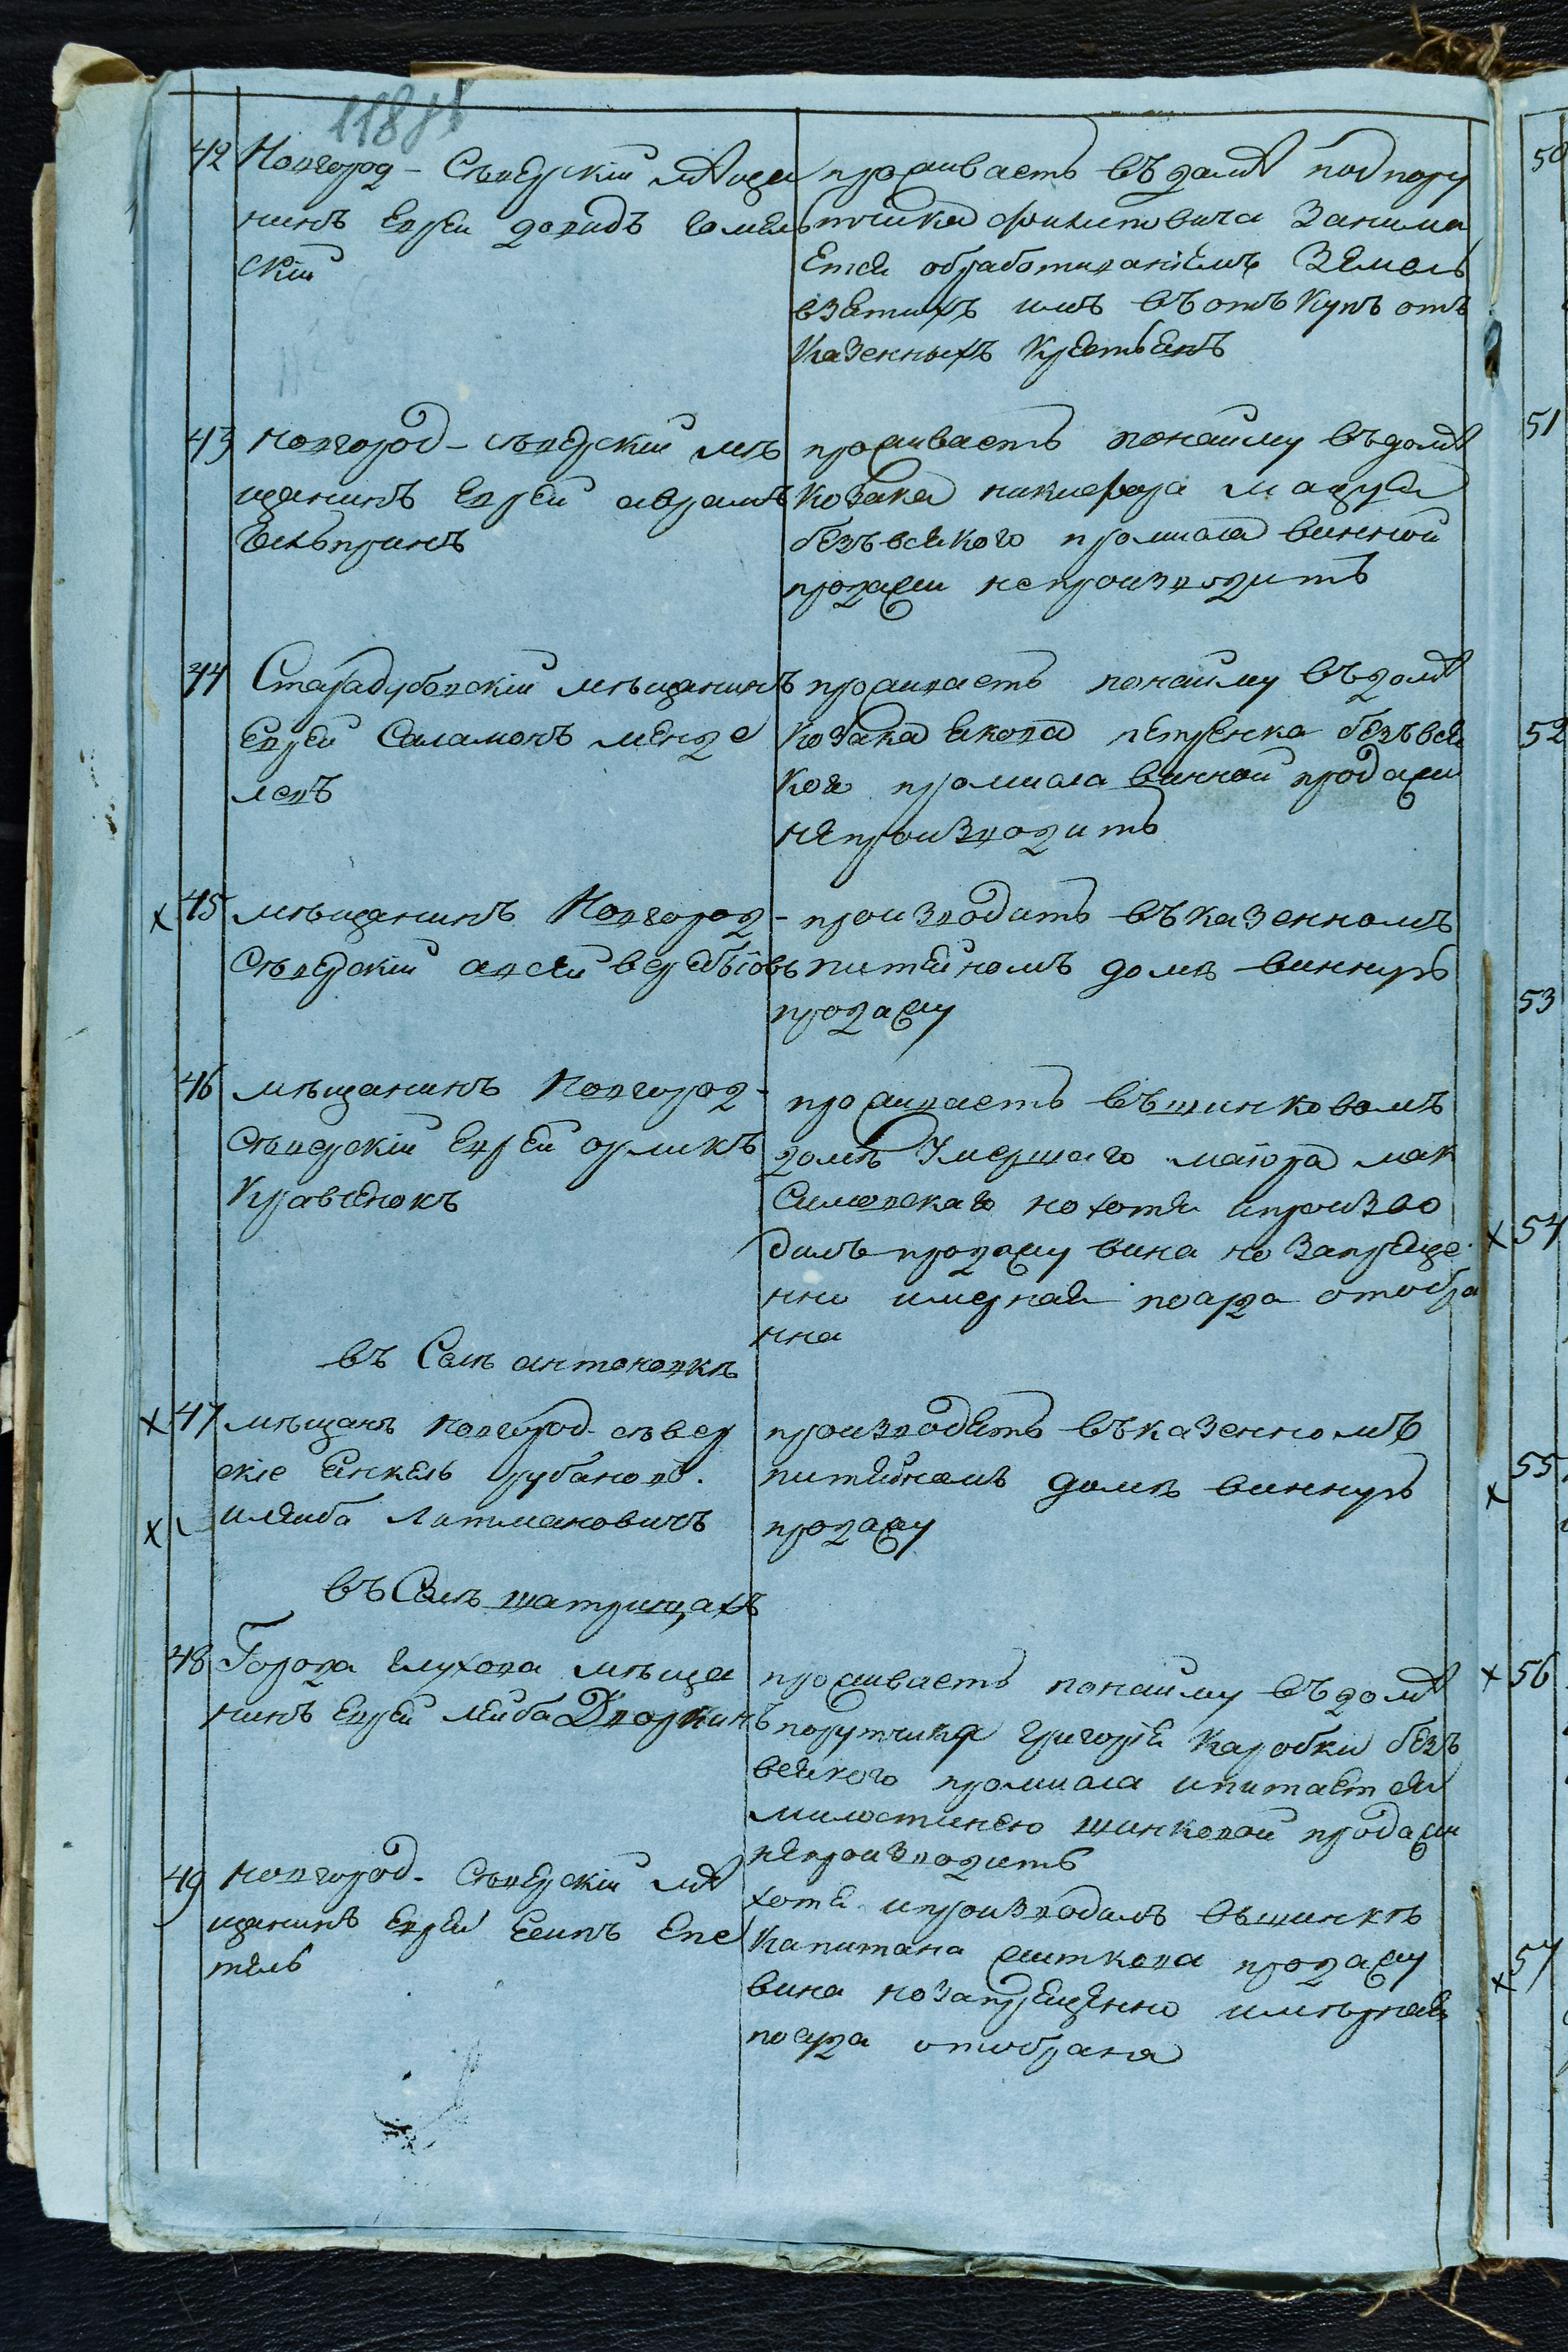 118
42 Новгород-Северскій меща
нинъ Еврей Давидъ Гомель
скій
проживаетъ въ доме подпору
тчика Филиповича занима
ется обработиваніемъ земель
взетихъ имъ въ откупъ отъ
казенныхъ крестьенъ
43 Новгород-Северскій мѣ
щанинъ Еврей Аврамъ
Гальпринъ
проживаетъ понайму въ доме
козака Никифора Мацуя
безъ всякого промисла винной
продажи непроизводитъ
44 Стародубовскій мѣщанинъ
Еврей Саламонъ Менде
левъ
проживаетъ понайму въ доме
козака Якова Петренка безъ вся
кого промисла винной продажи
непроизводитъ
х 45 мѣщанинъ Новгород-
Сѣверскій Овсей Веребьіовъ
производитъ въ казенномъ
питейномъ домѣ винную
продажу
46 мѣщанинъ Новгород-
Сѣверскій Еврей Орликъ
Кравченокъ
проживаетъ въ шинковомъ
домѣ умершаго маіора Мак
симовскаго но хотя и произво
дилъ продажу вина но запреще
нно имерная посуда отобра
нна
въ Селѣ Антоновкѣ
х 47 мѣщанъ Новгород-сѣвер
скіе Янкель Рубановъ.
х и Лейба Литмановичъ
производятъ въ казенномъ
питейномъ домѣ винную
продажу
въ Селѣ Шатрищахъ
48 Города Глухова мѣща
нинъ Еврей Лейба Дворкинъ
проживаетъ понайму въ доме
порутчика Григорія Каробки безъ
всякого промисла и питается
милостинею шинковой продажи
непроизводитъ
49 Новгород-Сѣверскій ме
щанинъ Еврей Есипъ Епе
тель
хотя и производилъ въ шинкѣ
капитана Житкова продажу
вина но запрещенно имѣрная
посуда отобрана
50
51
52
53
х 54
х 55
х 56
х 57